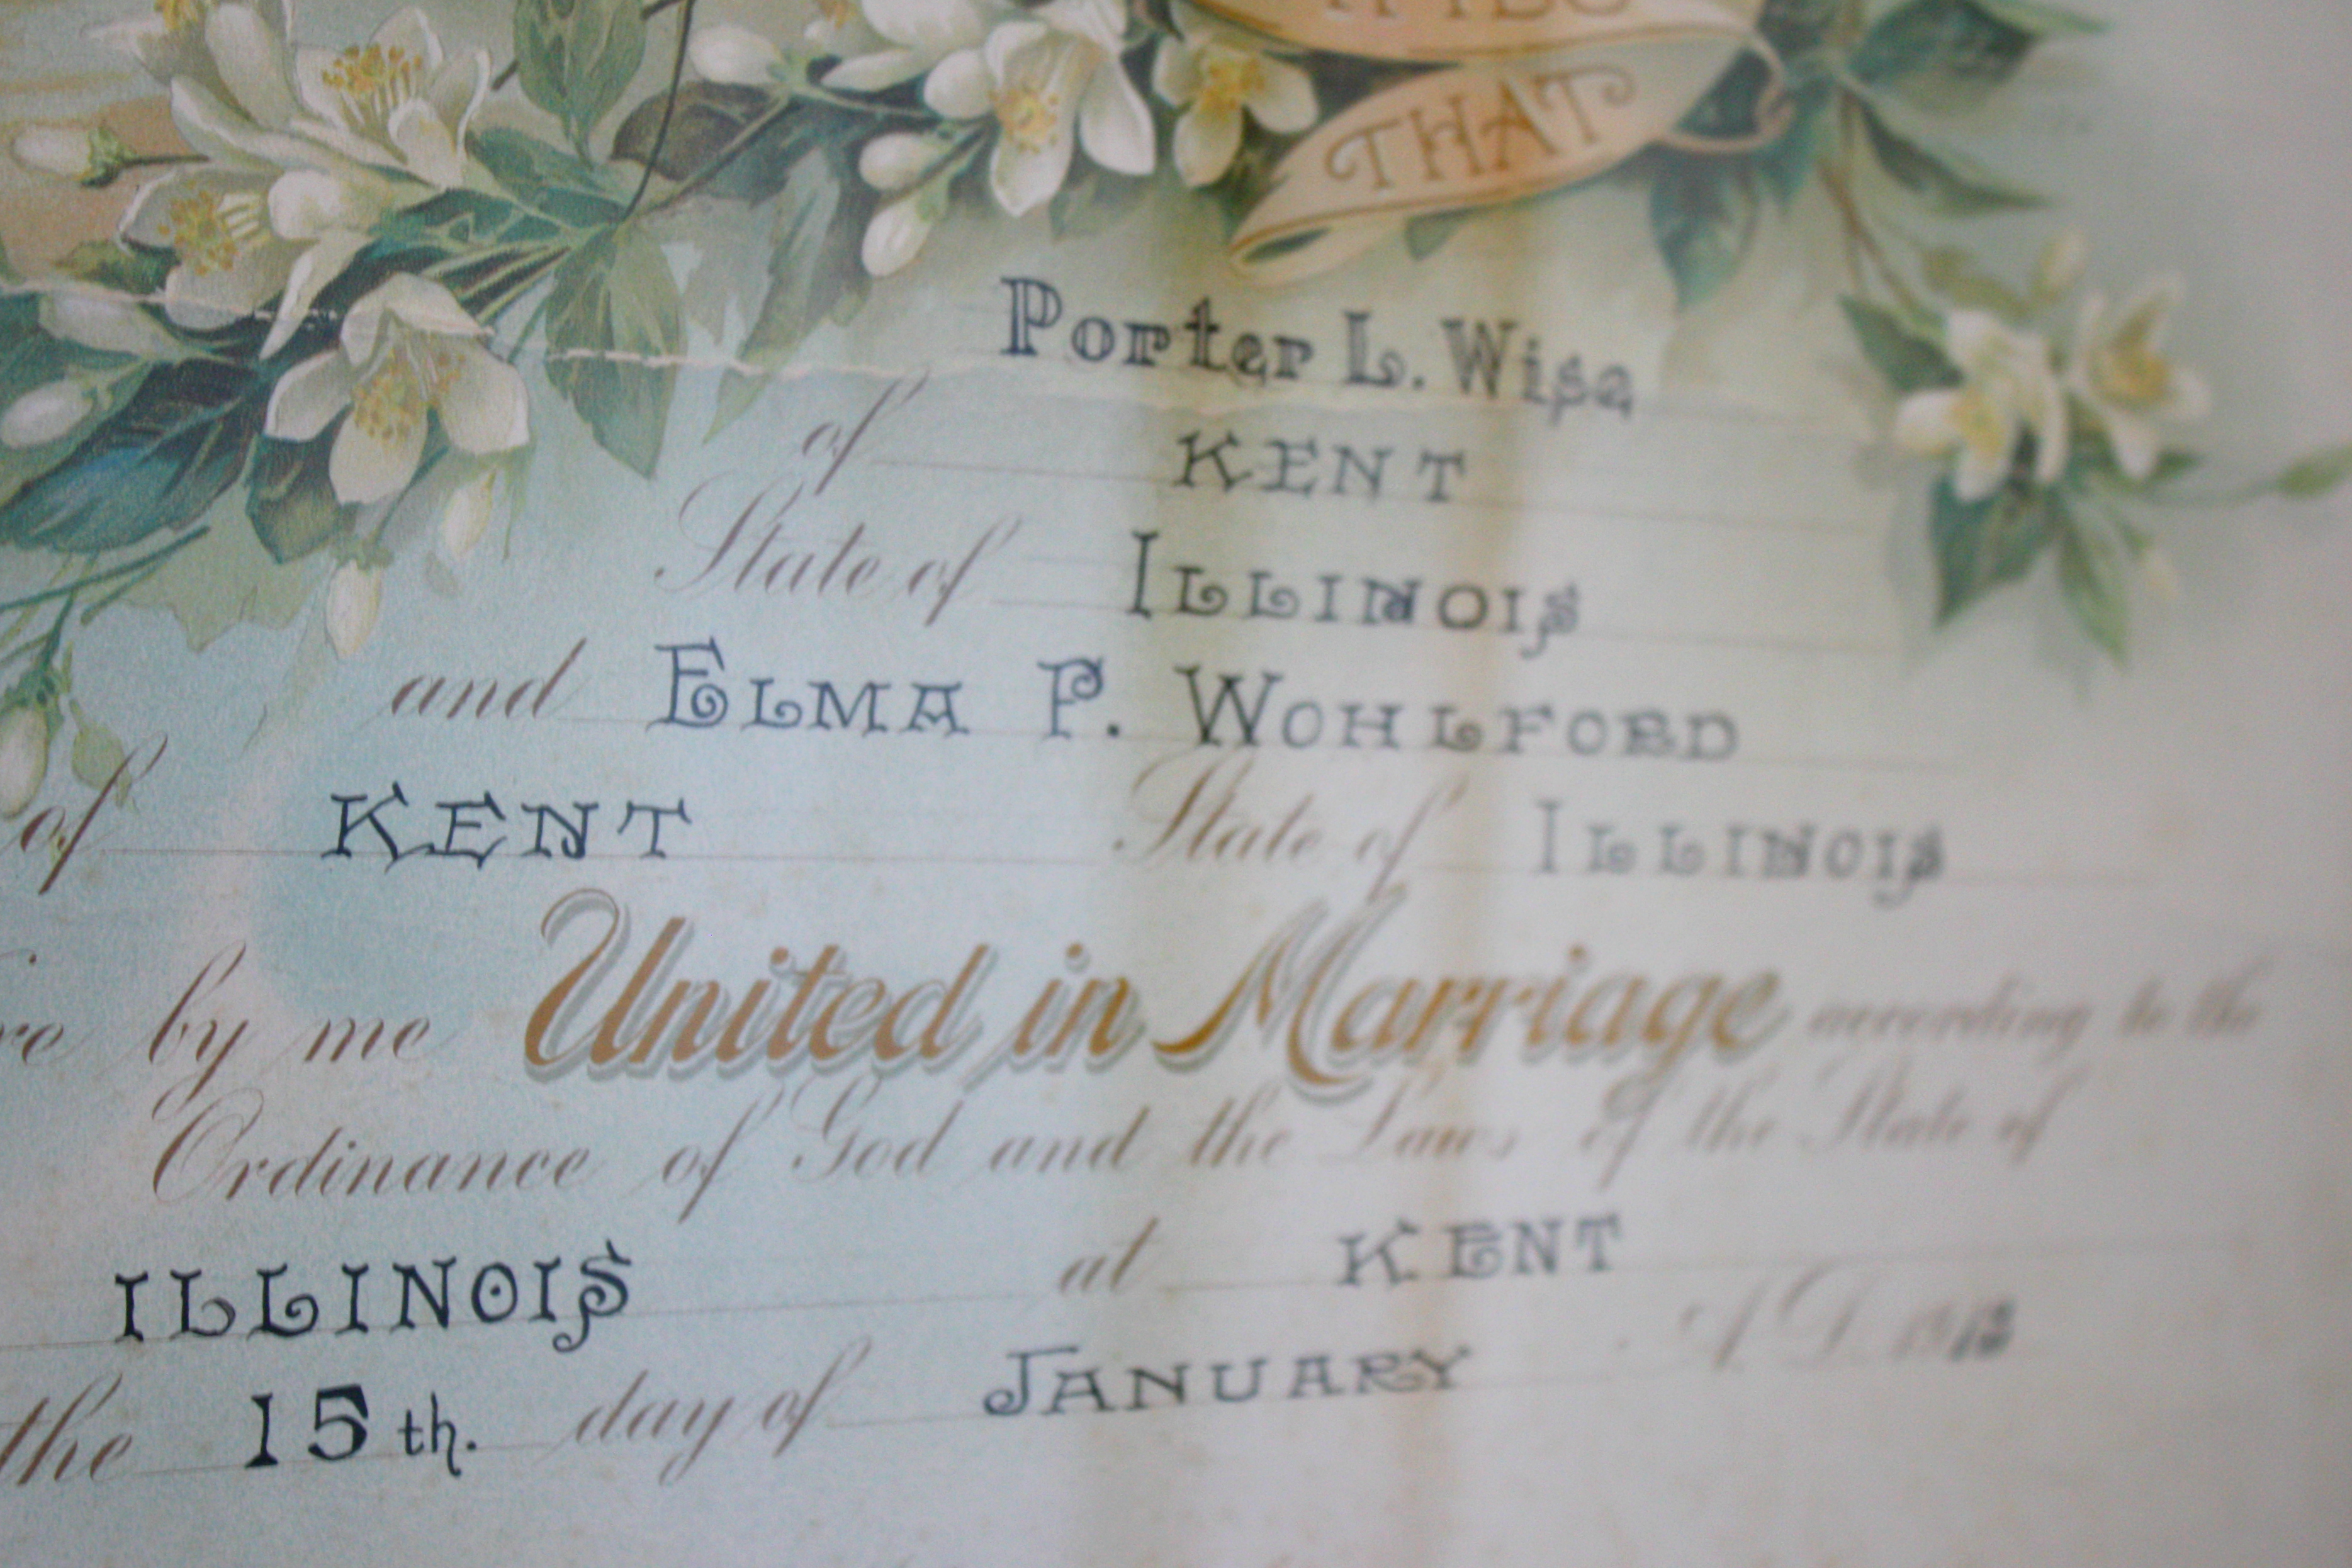 THAT
Porter L. Wise
of KENT
State of ILLINOIS
and ELMA P. WOHLFORD
of KENT State of ILLINOIS
by me United in Marriage according to the
Ordinance of God and the Laws of the State of
ILLINOIS at KENT
the 15th. day of JANUARY A.D. 1913